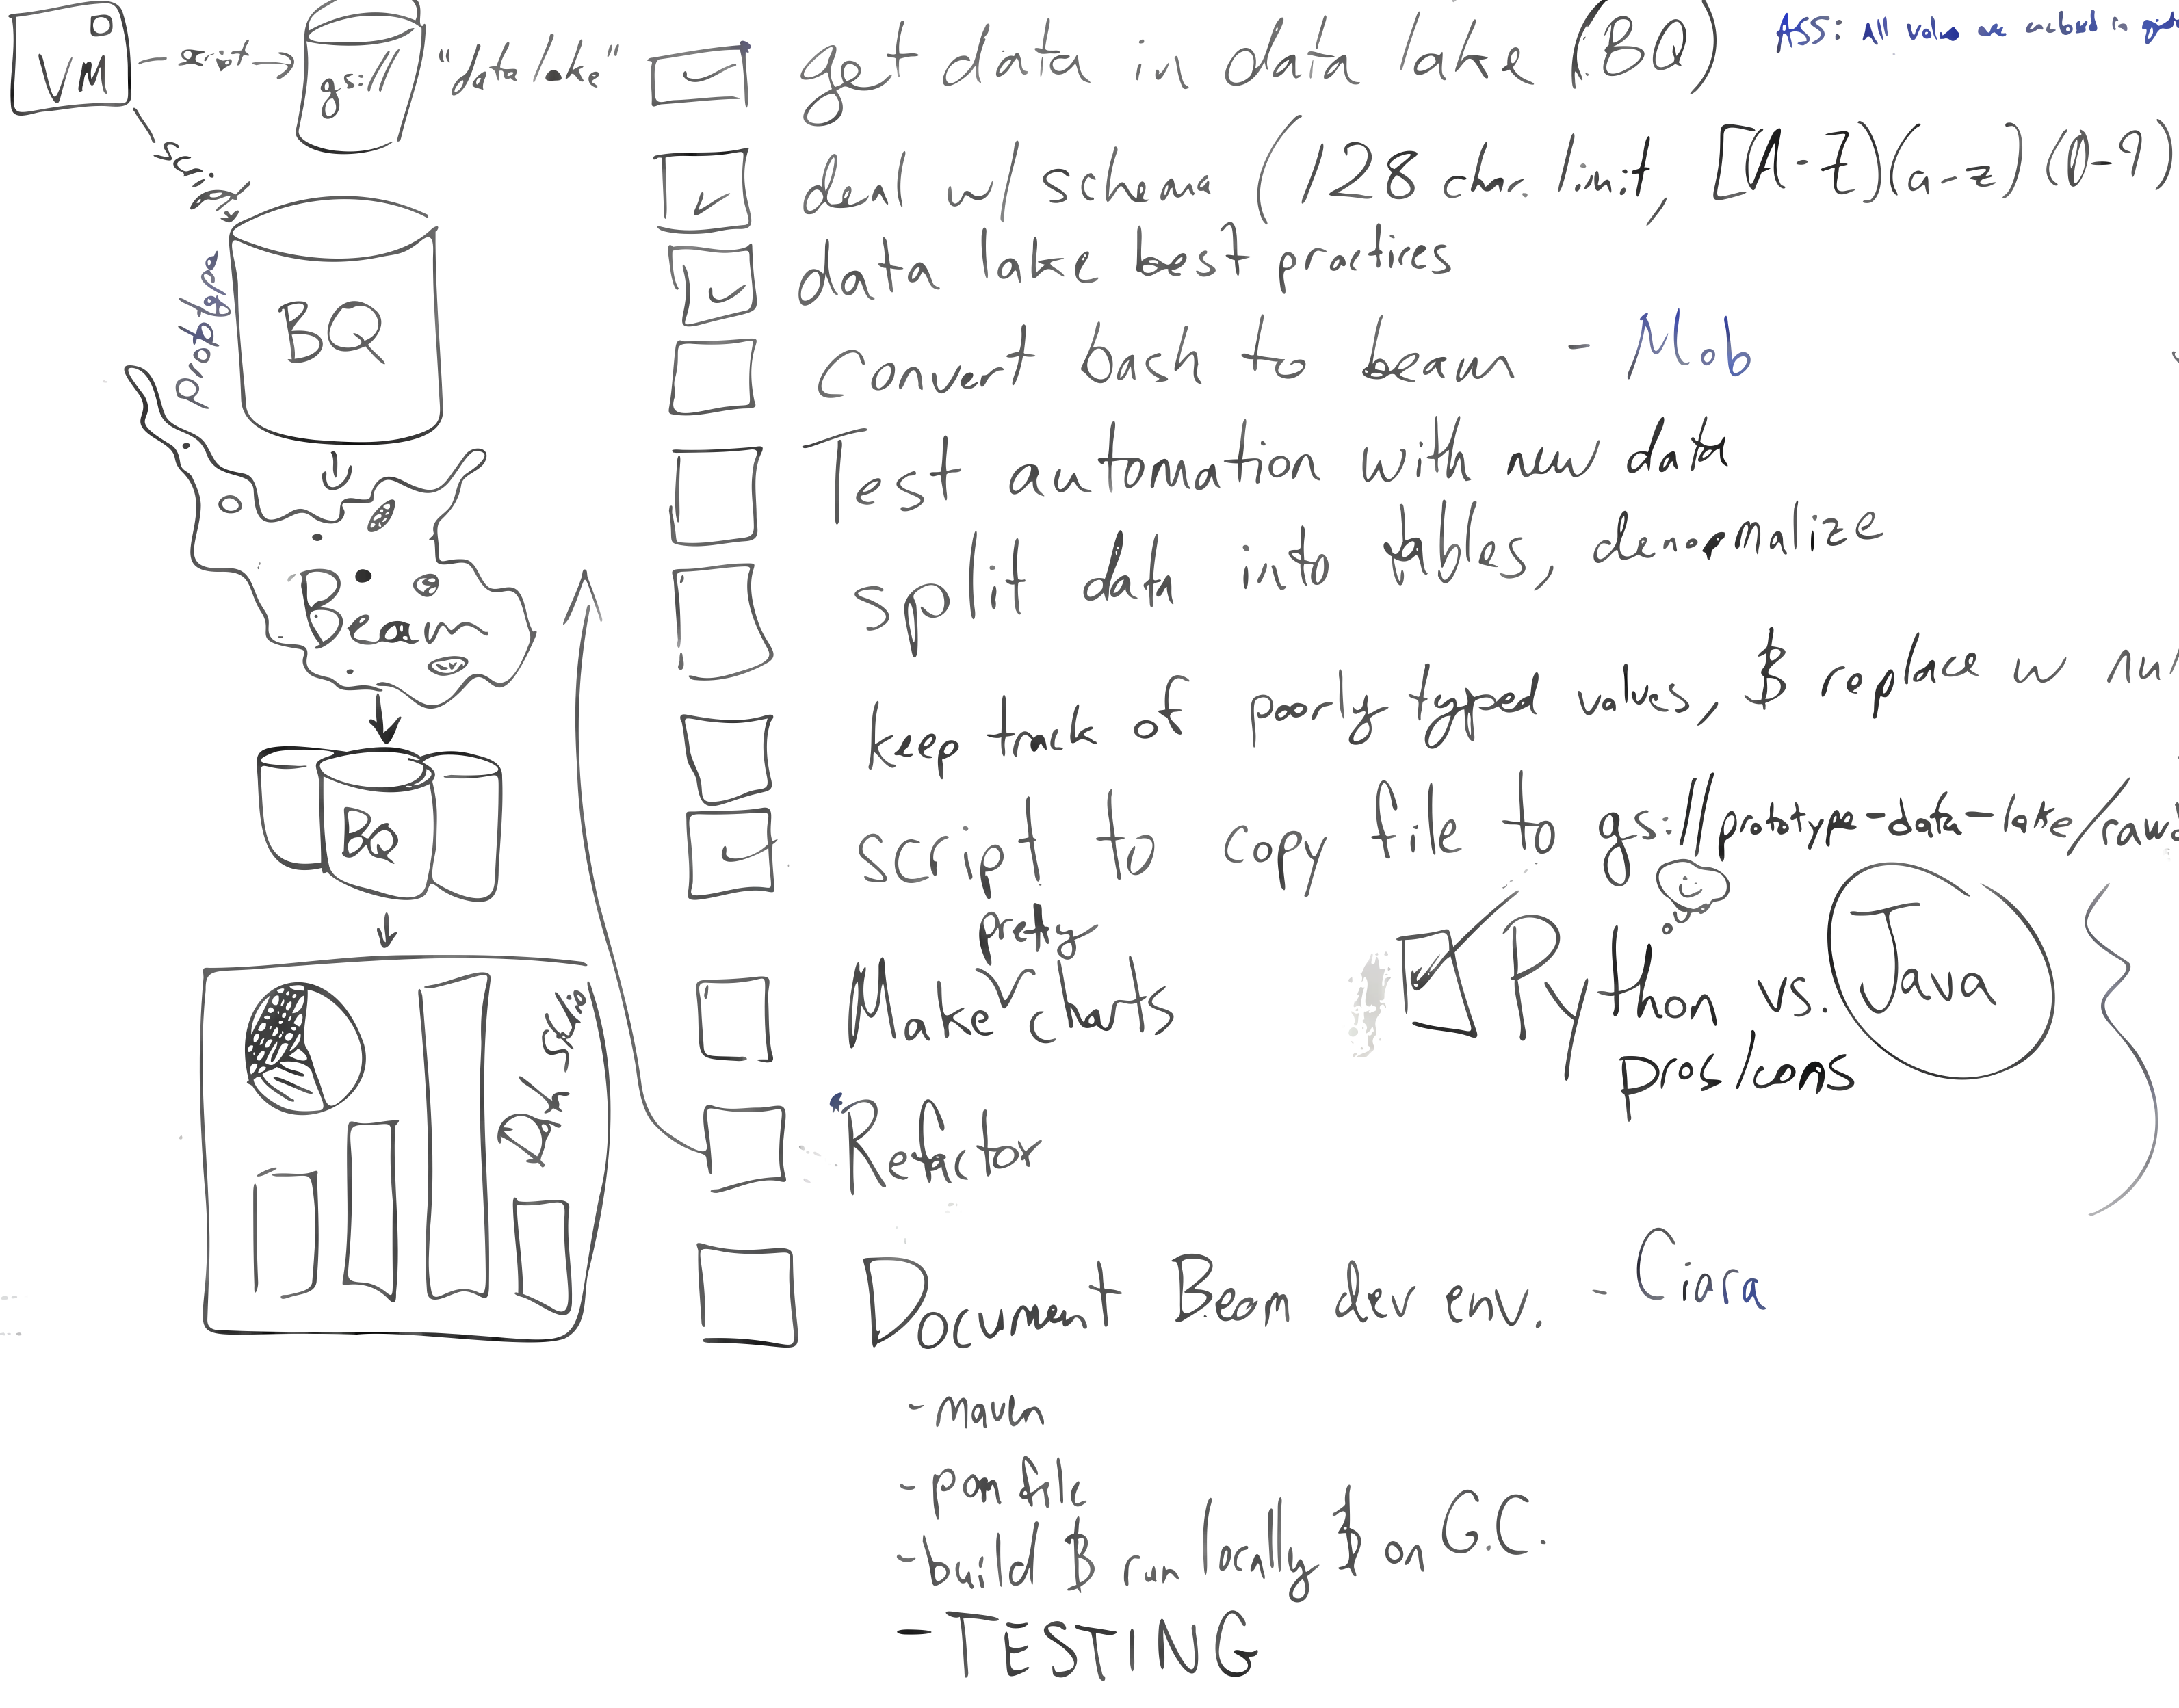 VM
script
gs://
"data lake"
script
prototype
BQ
Beam
BQ
Data Viz
get data in data lake (BQ)
ASS: All vals are
deal w/ schema (128 char. limit, [(A-Z)(a-z)(0-9)
data lake best practices
Convert back to beam - Mob
Test automation with new data
split data into tables, denormalize
keep track of poorly typed values, & replace w
script to copy file to gs://prototype-data-lake/raw
Make pretty charts
Python vs. Java
pros/cons
Refactor
Document Beam dev env. - Ciara
- maven
- pom file
- build & run locally & on G.C.
- TESTING